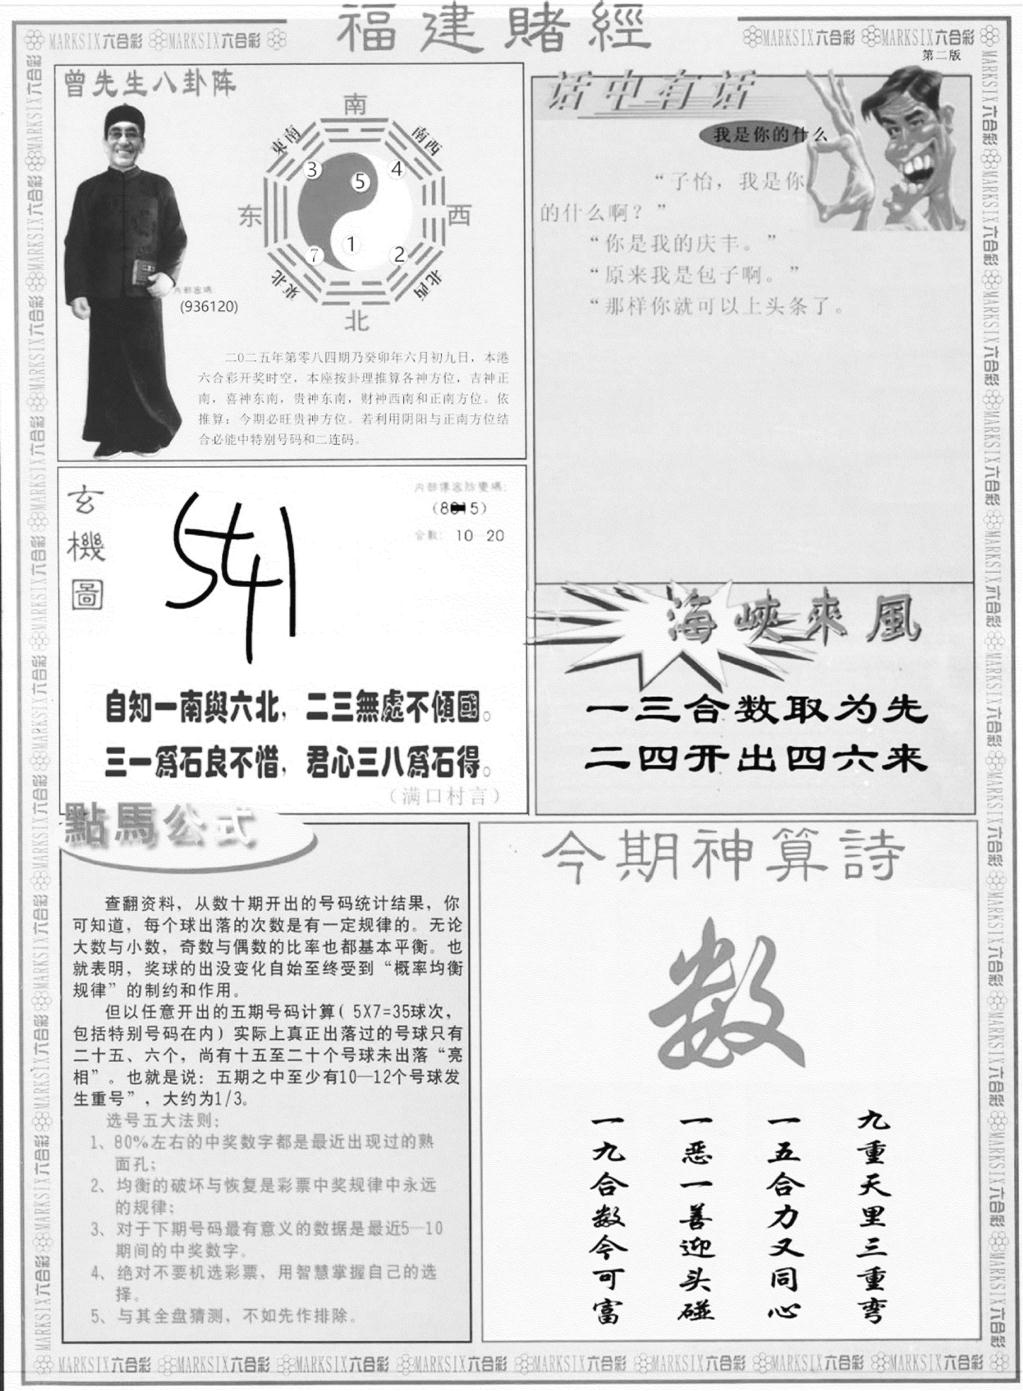 福建賭經
MARKSIX六合彩 MARKSIX六合彩
MARKSIX六合彩 MARKSIX六合彩
第二版
曾先生八卦阵
南
東南
南西
3
4
5
东
西
1
7
2
東北
北西
北
内部密碼
(936120)
二0二五年第零八四期乃癸卯年六月初九日，本港
六合彩开奖时空，本座按卦理推算各神方位，吉神正
南，喜神东南，贵神东南，财神西南和正南方位。依
推算：今期必旺贵神方位。若利用阴阳与正南方位结
合必能中特别号码和二连码。
话中有话
我是你的什么
“子怡，我是你
的什么啊？”
“你是我的庆丰。”
“原来我是包子啊。”
“那样你就可以上头条了。
玄機圖
541
内部傳密防變碼：
合數：10—20
自知一南與六北，二三無處不傾國。
三一爲石良不惜，君心三八爲石得。
（满口村言）
海峽來風
一三合数取为先
二四开出四六来
點馬公式
查翻资料，从数十期开出的号码统计结果，你
可知道，每个球出落的次数是有一定规律的。无论
大数与小数，奇数与偶数的比率也都基本平衡。也
就表明，奖球的出没变化自始至终受到“概率均衡
规律”的制约和作用。
但以任意开出的五期号码计算( 5X7=35球次，
包括特别号码在内）实际上真正出落过的号球只有
二十五、六个，尚有十五至二十个号球未出落“亮
相”。也就是说：五期之中至少有10—12个号球发
生重号”，大约为1/3。
选号五大法则：
1、80%左右的中奖数字都是最近出现过的熟
面孔；
2、均衡的破坏与恢复是彩票中奖规律中永远
的规律；
3、对于下期号码最有意义的数据是最近5—10
期间的中奖数字。
4、绝对不要机选彩票，用智慧掌握自己的选
择。
5、与其全盘猜测，不如先作排除。
今期神算詩
数
九重天里三重弯
一五合力又同心
一恶一善迎头碰
一九合数今可富
MARKSIX六合彩 MARKSIX六合彩 MARKSIX六合彩 MARKSIX六合彩 MARKSIX六合彩 MARKSIX六合彩 MARKSIX六合彩 MARKSIX六合彩